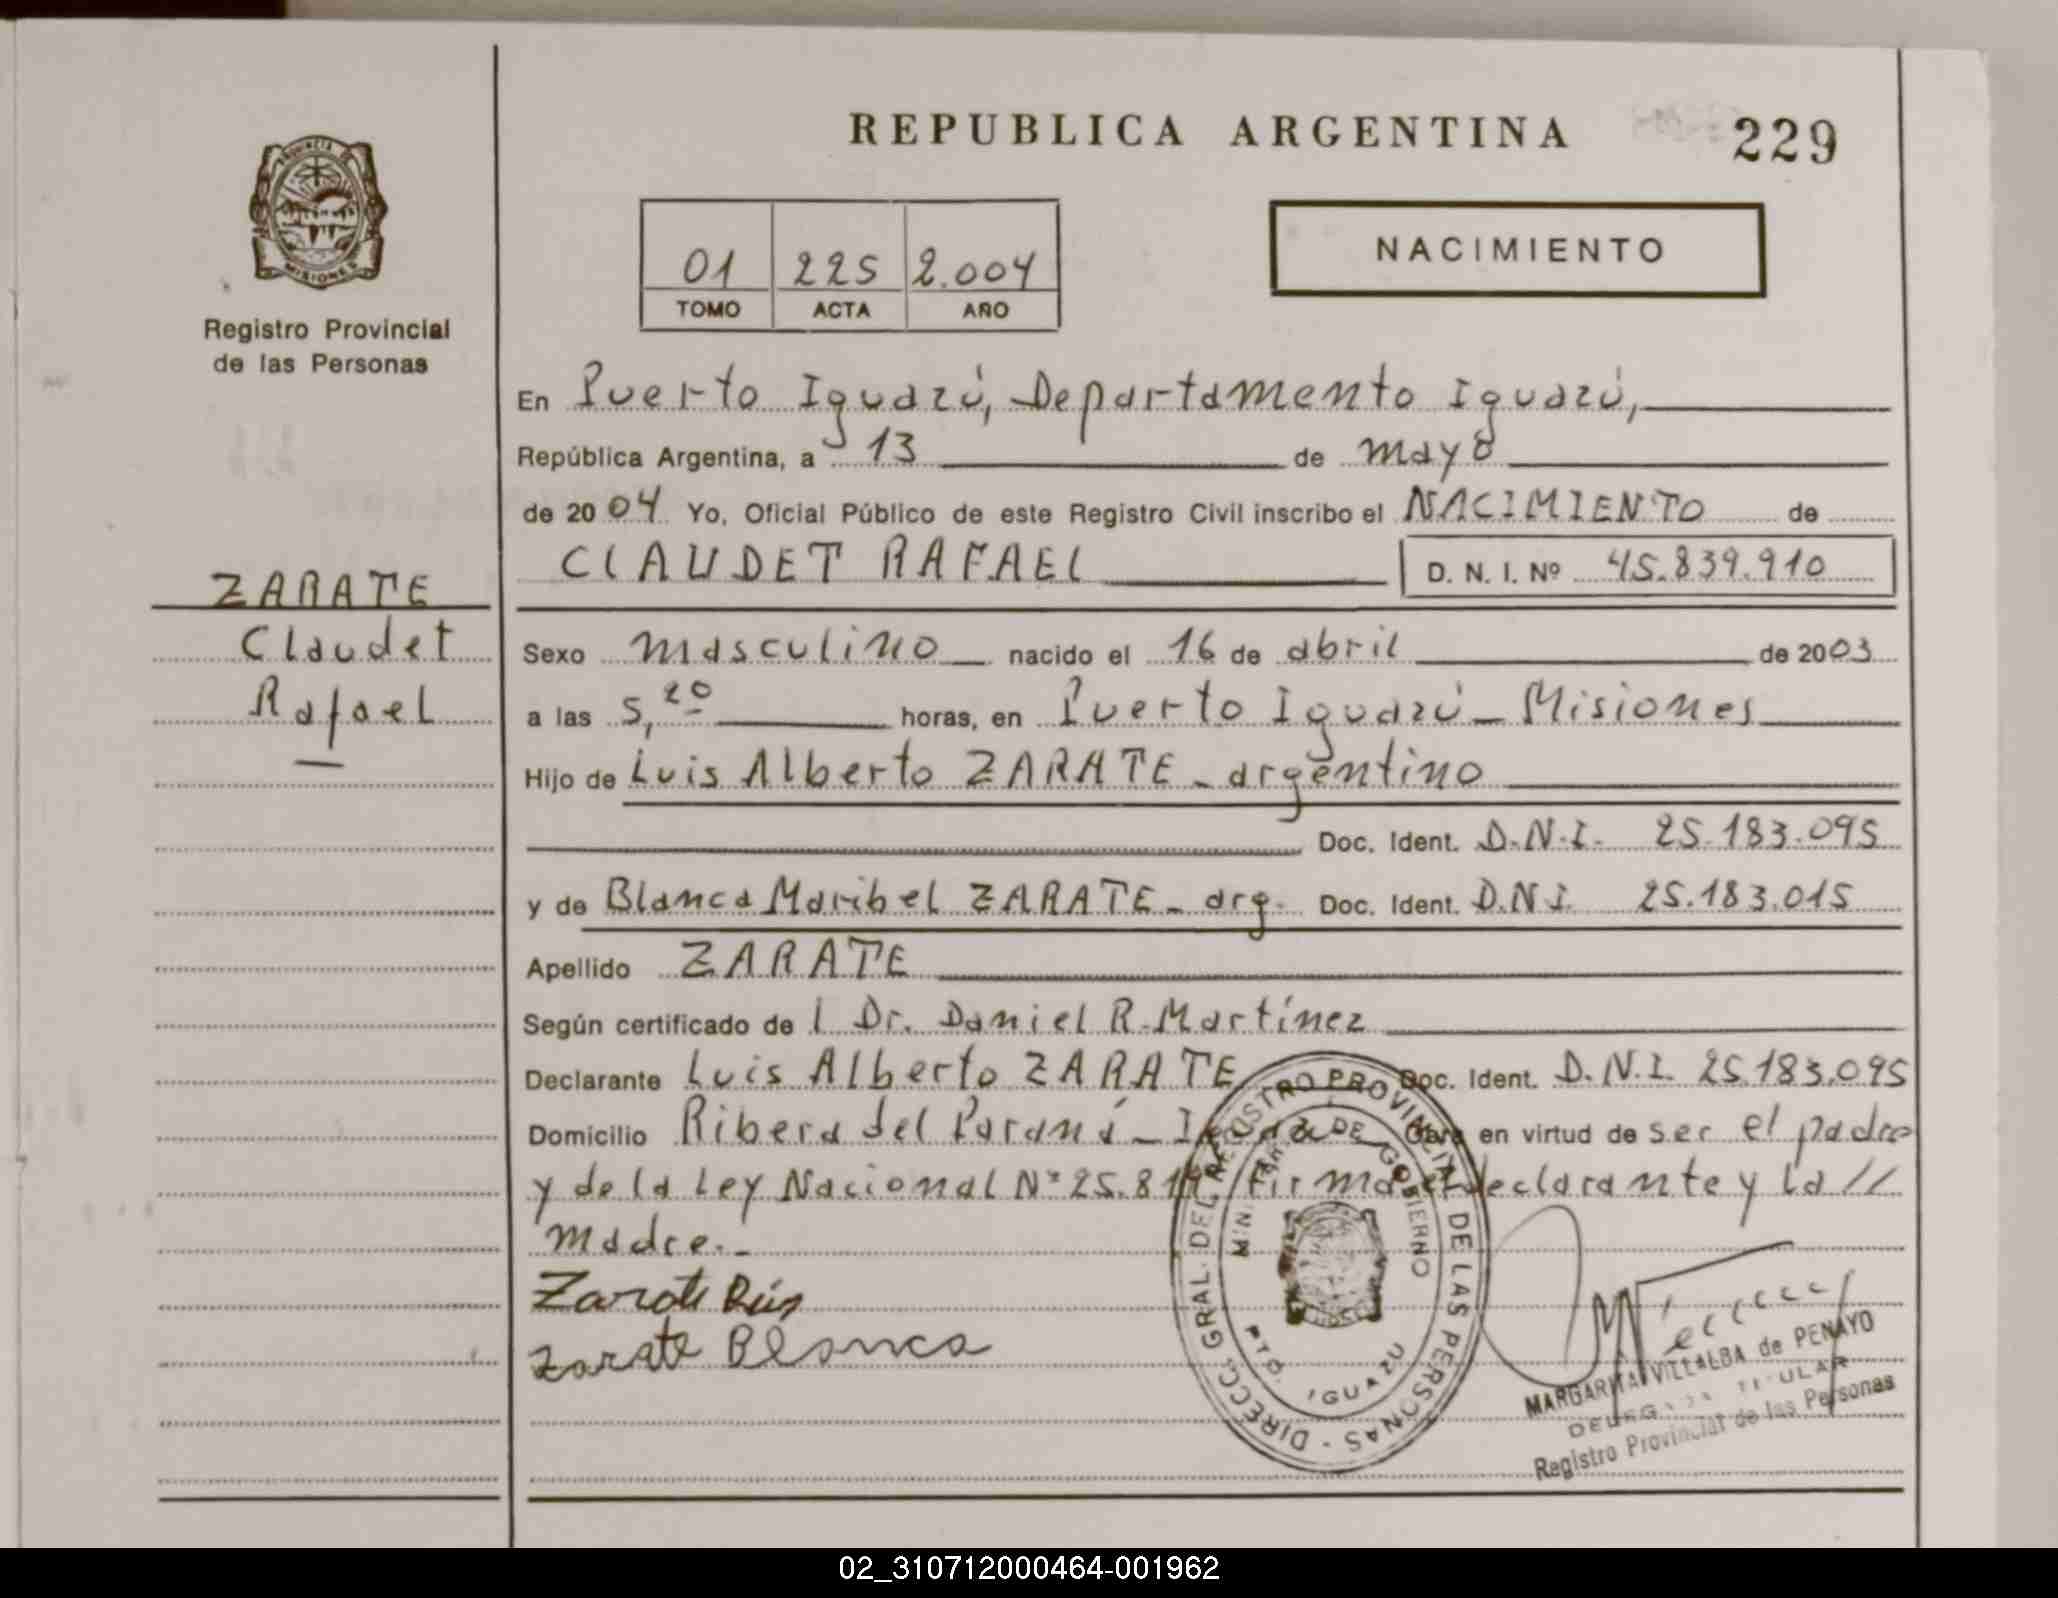 REPUBLICA ARGENTINA
229
PROVINCIA DE
MISIONES
Registro Provincial
de las Personas
01 225 2.004
TOMO ACTA AÑO
NACIMIENTO
En Puerto Iguazú, Departamento Iguazú,
República Argentina, a 13 de mayo
de 2004 Yo, Oficial Público de este Registro Civil inscribo el NACIMIENTO de
CLAUDET RAFAEL D. N. I. Nº 45.839.910
ZARATE
Claudet
Rafael
Sexo masculino nacido el 16 de abril de 2003
a las 5,20 horas, en Puerto Iguazú - Misiones
Hijo de Luis Alberto ZARATE - argentino
Doc. Ident. D.N.I. 25.183.095
y de Blanca Maribel ZARATE - arg. Doc. Ident. D.N.I. 25.183.015
Apellido ZARATE
Según certificado de l Dr. Daniel R. Martínez
Declarante Luis Alberto ZARATE Doc. Ident. D.N.I. 25.183.095
Domicilio Ribera del Paraná - Obra en virtud de ser el padre
y de la Ley Nacional Nº 25.819 firma el declarante y la //
madre.-
Zarate Luis
Zarate Blanca
DIRECC. GRAL. DEL REGISTRO PROVINCIAL DE LAS PERSONAS -
MINISTERIO DE GOBIERNO
PTO. IGUAZU
MARGARITA VILLALBA de PENAYO
DELEGADA TITULAR
Registro Provincial de las Personas
02_310712000464-001962